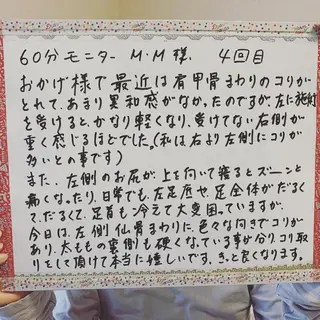 60分 モニター M・M様. 4回目
おかげ様で最近は肩甲骨まわりのコリが
とれて、あまり違和感がなかったのですが、左に施術
を受けると、かなり軽くなり、受けてない右側が
重く感じるほどでした。(私は右より左側にコリが
多いとの事です)
また、左側のお尻が上を向いて寝るとズーンと
痛くなったり、日常でも、左足底や足全体がだるく
て、だるくて、足首も冷えて大変困っていますが、
今日は、左側仙骨まわりに、色々な向きでコリが
あり、太ももの裏側も硬くなっている事が分り、コリ取
りをして頂けて本当に嬉しいです。きっと良くなります。